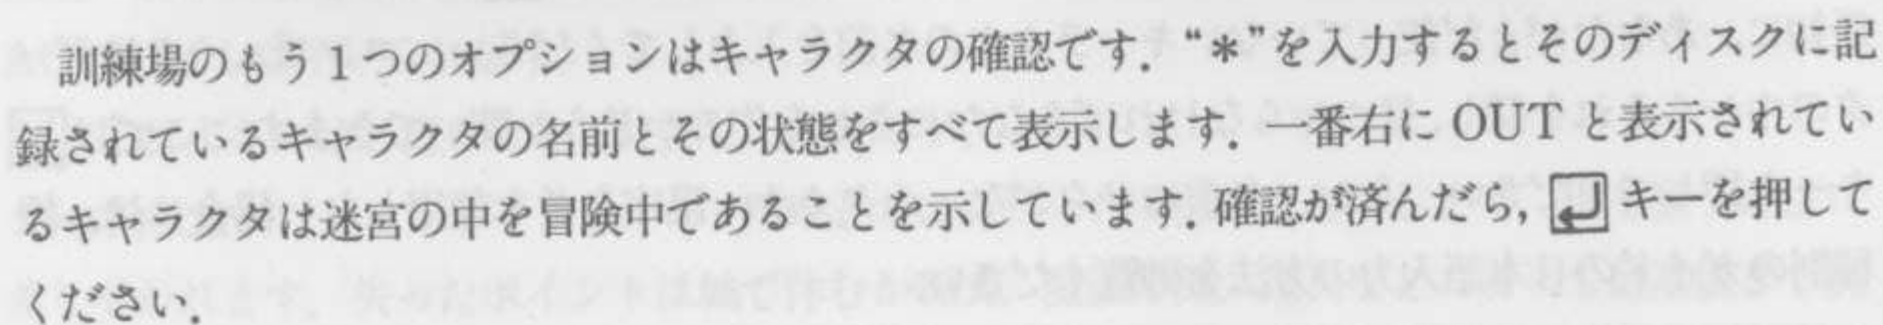 訓練場のもう1つのオプションはキャラクタの確認です．“＊”を入力するとそのディスクに記
録されているキャラクタの名前とその状態をすべて表示します．一番右に OUT と表示されてい
るキャラクタは迷宮の中を冒険中であることを示しています．確認が済んだら，↵キーを押して
ください．